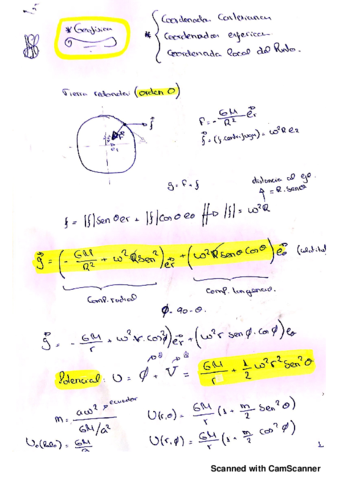 * Geofísica
Coordenadas cartesianas
* Coordenadas esféricas
Coordenada local del Punto.
Tierra redonda (orden 0)
F = -GM/R² e⃗r
f⃗ = (f centrífuga) = ω²R e₂
g = F + f
distancia al eje
= R·senθ
f = |f| senθ er + |f| cosθ eθ |f| = ω²R
g⃗ = (-GM/R² + ω²R sen²) e⃗r + (ω²R senθ cosθ) e⃗θ
Comp. radial
Comp. tangencial
ϕ = 90-θ
g⃗ = -GM/r + ω²r·cos²ϕ) e⃗r + (ω²r senϕ·cosϕ) eθ
Potencial: U = ϕ + V = GM/r + 1/2 ω²r² sen²θ
m = aω²/GM/a² → ecuador
U(r,θ) = GM/r (1 + m/2 sen²θ)
U(r,ϕ) = GM/r (1 + m/2 cos²ϕ)
1
Scanned with CamScanner